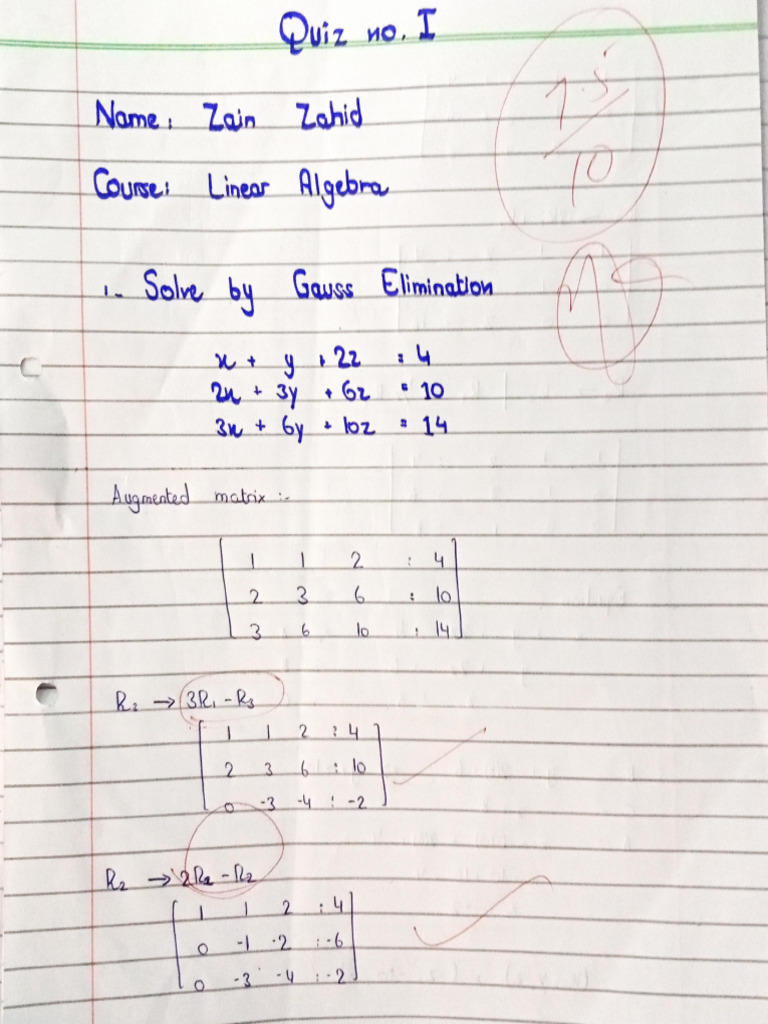 Quiz no. I
7.5/10
Name: Zain Zahid
Course: Linear Algebra
1.- Solve by Gauss Elimination
x + y + 2z = 4
2x + 3y + 6z = 10
3x + 6y + 10z = 14
Augmented matrix :-
1 1 2 : 4
2 3 6 : 10
3 6 10 : 14
R₃ → 3R₁ - R₃
1 1 2 : 4
2 3 6 : 10
0 -3 -4 : -2
R₂ → 2R₁ - R₂
1 1 2 : 4
0 -1 -2 : -6
0 -3 -4 : -2